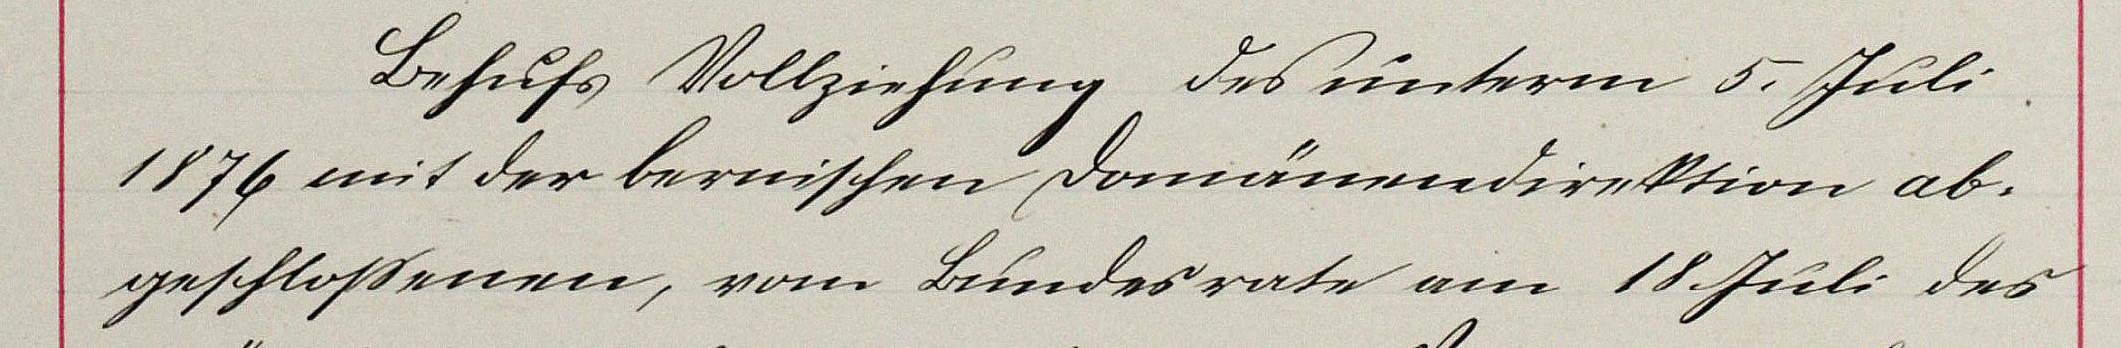 Behufs Vollziehung des unterm 5. Juli
1876 mit der bernischen Domänendirektion ab-
geschloßenen, vom Bundesrate am 18. Juli des